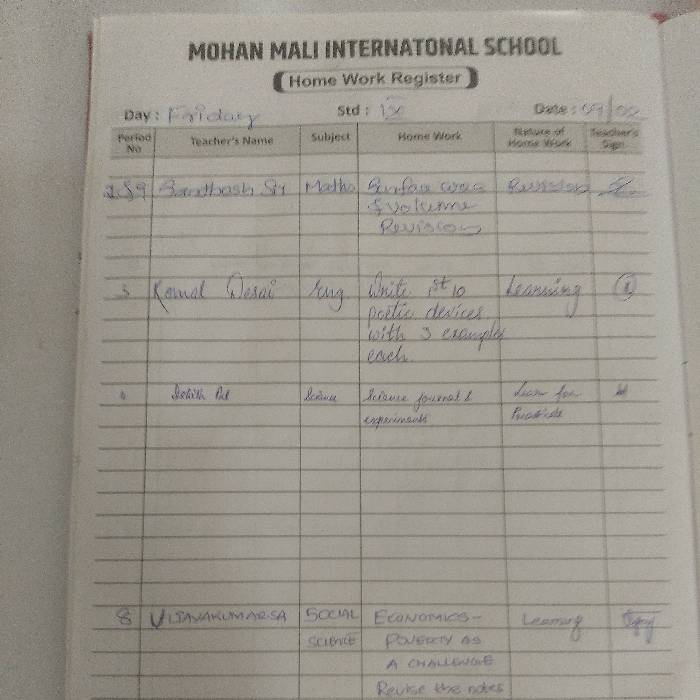 MOHAN MALI INTERNATONAL SCHOOL
Home Work Register
Day: Friday Std: IX Date: 09/
Period No Teacher's Name Subject Home Work Nature of Home Work Teacher's Sign
Santhosh Sir Maths Surface area Revision
& volume
Revision
3 Komal Desai Eng Write 1st 10 Learning
poetic devices
with 3 examples
each.
Science Science journal & Learn for
experiments
8 VIJAYAKUMAR.SA SOCIAL ECONOMICS- Learning
SCIENCE POVERTY AS
A CHALLENGE
Revise the notes